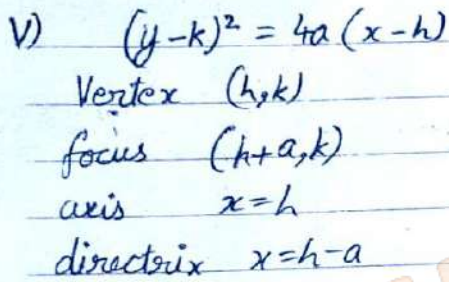 V) (y-k)² = 4a (x-h)
Vertex (h,k)
focus (h+a,k)
axis x=h
directrix x=h-a